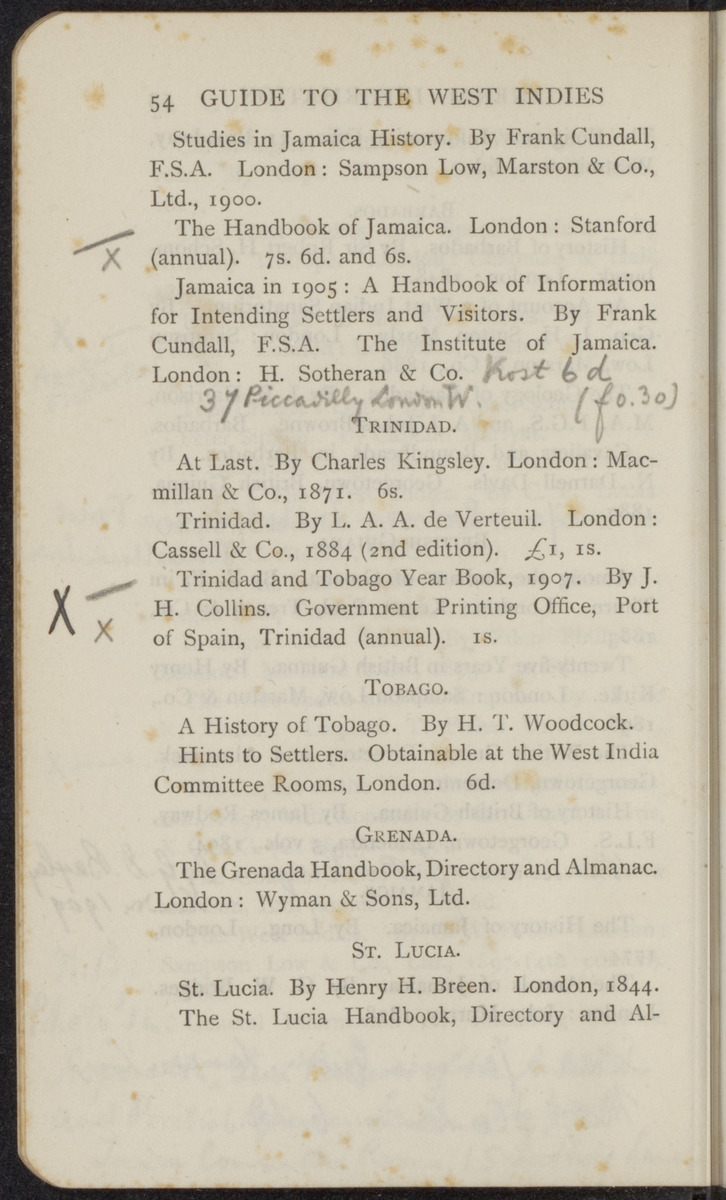 54 GUIDE TO THE WEST INDIES
Studies in Jamaica History. By Frank Cundall,
F.S.A. London: Sampson Low, Marston & Co.,
Ltd., 1900.
The Handbook of Jamaica. London: Stanford
X (annual). 7s. 6d. and 6s.
Jamaica in 1905: A Handbook of Information
for Intending Settlers and Visitors. By Frank
Cundall, F.S.A. The Institute of Jamaica.
London: H. Sotheran & Co. Kost 6 d
37 Piccadilly London W. (f 0.30)
TRINIDAD.
At Last. By Charles Kingsley. London: Mac-
millan & Co., 1871. 6s.
Trinidad. By L. A. A. de Verteuil. London:
Cassell & Co., 1884 (2nd edition). £1, 1s.
Trinidad and Tobago Year Book, 1907. By J.
X X H. Collins. Government Printing Office, Port
of Spain, Trinidad (annual). 1s.
TOBAGO.
A History of Tobago. By H. T. Woodcock.
Hints to Settlers. Obtainable at the West India
Committee Rooms, London. 6d.
GRENADA.
The Grenada Handbook, Directory and Almanac.
London: Wyman & Sons, Ltd.
ST. LUCIA.
St. Lucia. By Henry H. Breen. London, 1844.
The St. Lucia Handbook, Directory and Al-